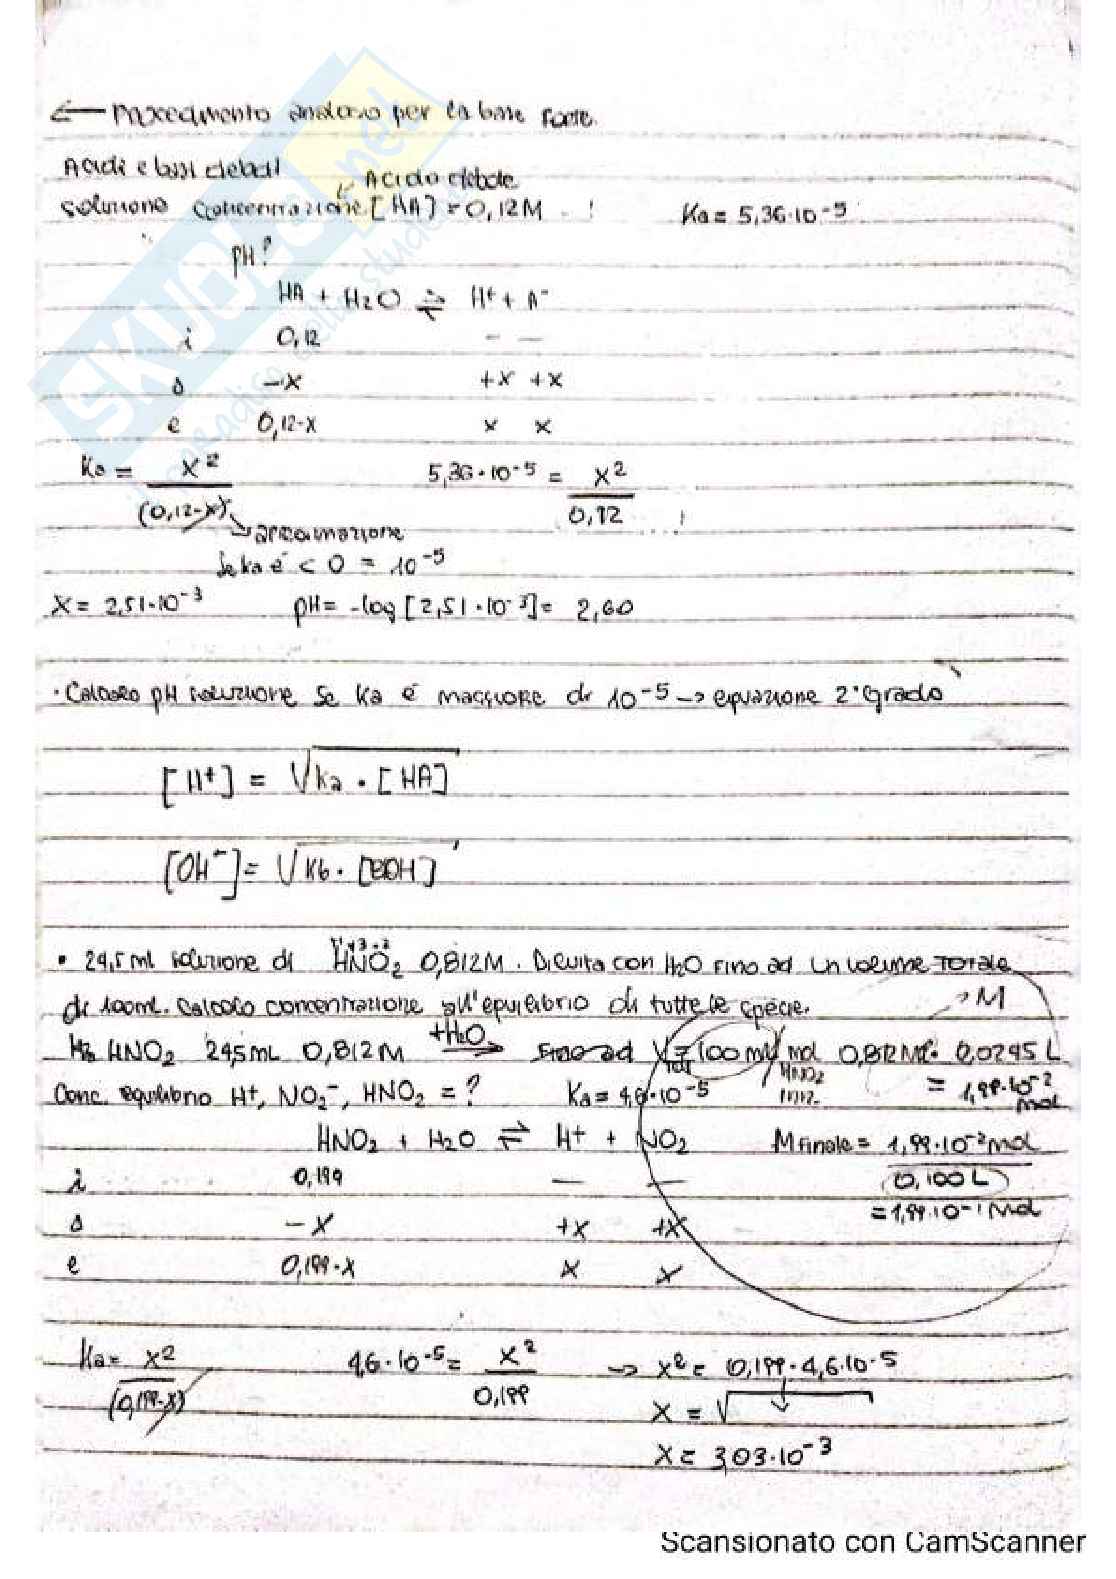 ← Procedimento analogo per la base forte.
Acidi e basi deboli
↙ Acido debole
soluzione concentrazione [HA] = 0,12M Ka = 5,36·10⁻⁵
pH?
HA + H₂O ⇌ H⁺ + A⁻
i 0,12 — —
Δ -x +x +x
e 0,12-x x x
Ka = x² / (0,12-x) 5,36·10⁻⁵ = x² / 0,12
↘ approssimazione
se Ka è < o = 10⁻⁵
X = 2,51·10⁻³ pH = -log [2,51·10⁻³] = 2,60
· Calcolo pH soluzione se Ka è maggiore di 10⁻⁵ → equazione 2° grado
[H⁺] = √Ka · [HA]
[OH⁻] = √Kb · [BOH]
• 24,5 ml soluzione di HNO₂ 0,812M. Diluita con H₂O fino ad un volume TOTALE
di 100ml. Calcolo concentrazione all'equilibrio di tutte le specie.
→ M
HNO₂ 24,5mL 0,812M +H₂O → fino ad V tot = 100 ml mol HNO₂ iniz. 0,812M · 0,0245 L
= 1,99·10⁻² mol
Conc. equilibrio H⁺, NO₂⁻, HNO₂ = ? Ka = 4,6·10⁻⁵
HNO₂ + H₂O ⇌ H⁺ + NO₂ M finale = 1,99·10⁻² mol / 0,100 L
i 0,199 — —
= 1,99·10⁻¹ mol
Δ -x +x +x
e 0,199-x x x
Ka = x² / (0,199-x) 4,6·10⁻⁵ = x² / 0,199 → x² = 0,199·4,6·10⁻⁵
X = √
X = 3,03·10⁻³
SKUOLA.net
Scansionato con CamScanner